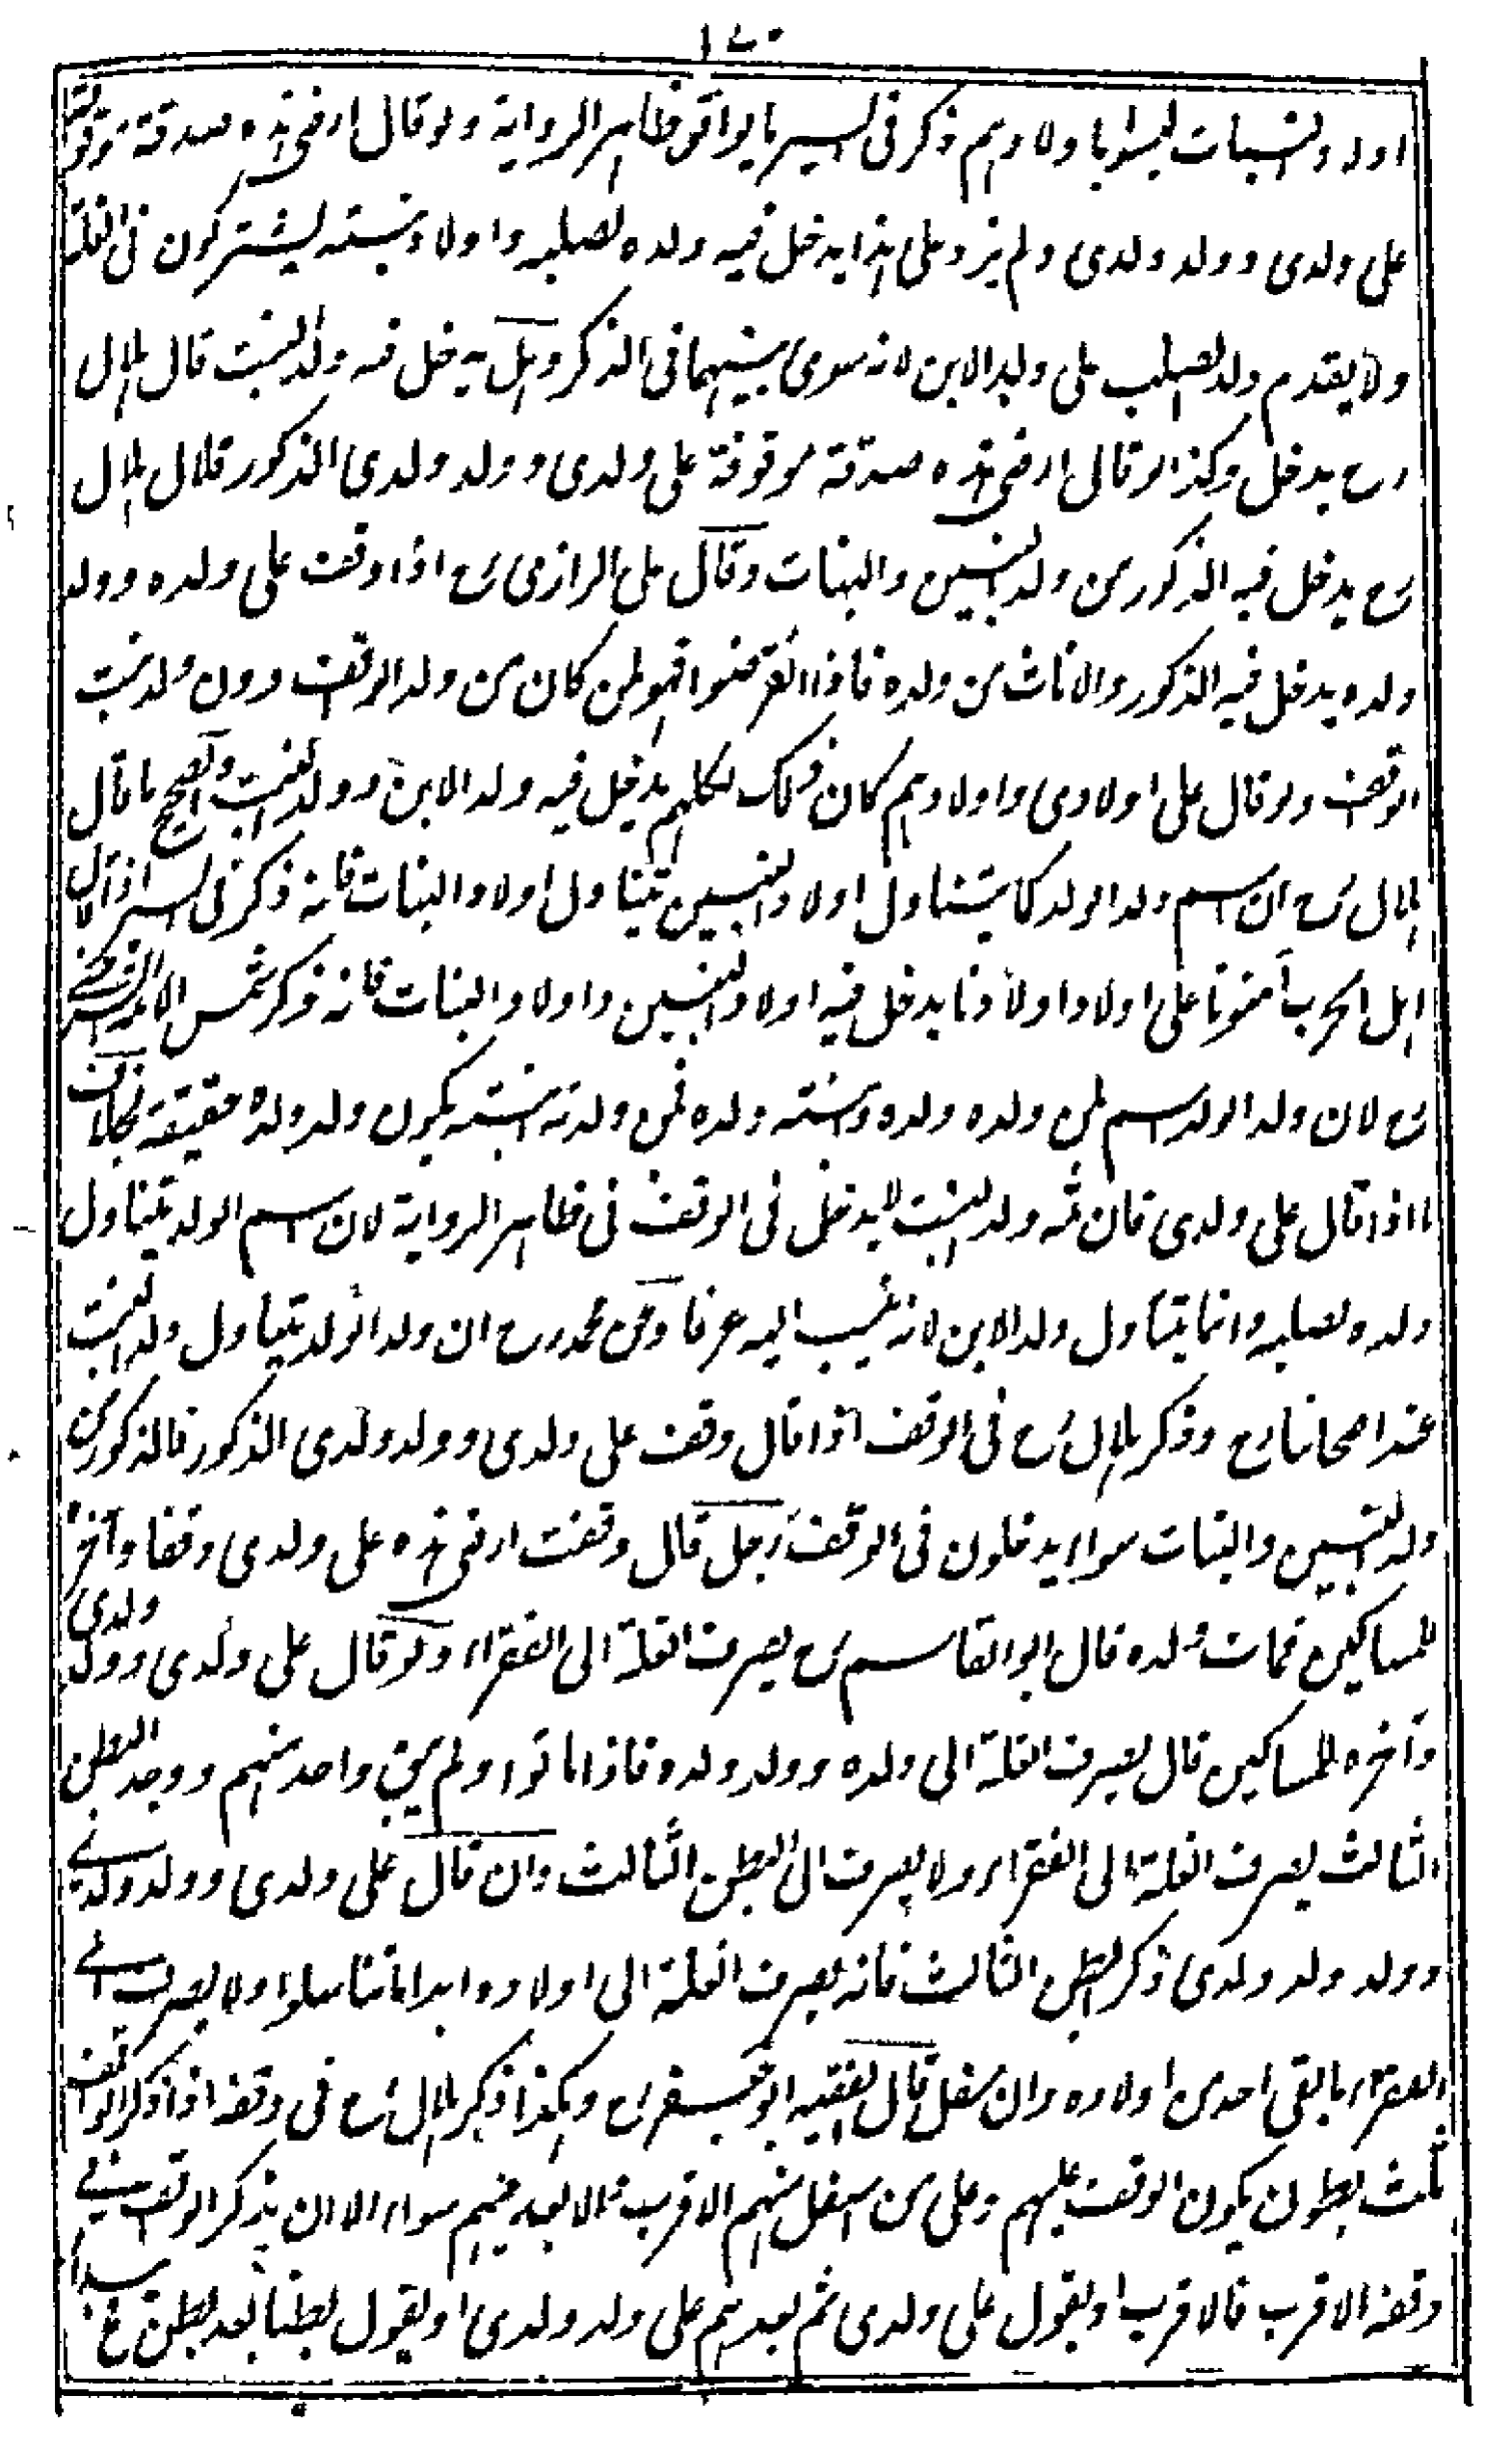 ١٧٠
اولاد البنات ليسوا باولادهم وذكر في السير ما يوافق ظاهر الرواية ولو قال ارضي هذه صدقة موقوفة
على ولدي وولد ولدي ولم يزد على هذا يدخل فيه ولده لصلبه واولاد بنيه يشتركون في الغلة
ولا يقدم ولد الصلب على ولد الابن لانه سوى بينهما في الذكر وهل يدخل فيه ولد البنت قال هلال
رح يدخل وكذا لو قال ارضي هذه صدقة موقوفة على ولدي وولد ولدي الذكور قال هلال
رح يدخل فيه الذكور من ولد البنين والبنات وقال علي الرازي رح اذا وقف على ولده وولد
ولده يدخل فيه الذكور والاناث من ولده فاذا انقرضوا فهو لمن كان من ولد الواقف دون ولد بنت
الواقف ولو قال على اولادي واولادهم كان ذلك لكلهم يدخل فيه ولد الابن وولد البنت والصحيح ما قال
هلال رح ان اسم ولد الولد كما يتناول اولاد البنين يتناول اولاد البنات فانه ذكر في السير اذا قال
اهل الحرب آمنونا على اولادنا واولاد اولادنا يدخل فيه اولاد البنين واولاد البنات فانه ذكر شمس الائمة السرخسي
رح لان ولد الولد اسم لمن ولده ولده وبنته ولده فمن ولدته بنته يكون ولد ولده حقيقة بخلاف
ما اذا قال على ولدي فان ثمه ولد البنت لا يدخل في الوقف في ظاهر الرواية لان اسم الولد يتناول
ولده لصلبه وانما يتناول ولد الابن لانه ينسب اليه عرفا وعن محمد رح ان ولد الولد يتناول ولد البنت
عند اصحابنا رح وذكر هلال رح في الوقف اذا قال وقفت على ولدي وولد ولدي الذكور فالذكور من
ولد البنين والبنات سواء يدخلون في الوقف رجل قال وقفت ارضي هذه على ولدي وقفا وآخره
للمساكين فمات ولده قال ابو القاسم رح يصرف الغلة الى الفقراء ولو قال على ولدي وولد ولدي
وآخره للمساكين قال يصرف الغلة الى ولده وولد ولده فاذا ماتوا ولم يبق واحد منهم ووجد البطن
الثالث يصرف الغلة الى الفقراء ولا يصرف الى البطن الثالث وان قال على ولدي وولد ولدي
وولد ولد ولدي ذكر البطن الثالث فانه يصرف الغلة الى اولاده ابدا ما تناسلوا ولا يصرف الى
الفقراء ما بقي احد من اولاده وان سفل قال الفقيه ابو جعفر رح وهكذا ذكر هلال رح في وقفه اذا ذكر الواقف
ثلث بطون يكون الوقف عليهم وعلى من اسفل منهم الاقرب والابعد فيهم سواء الا ان يذكر الواقف في
وقفه الاقرب فالاقرب او يقول على ولدي ثم بعدهم على ولد ولدي او يقول بطنا بعد بطن فح يبدأ